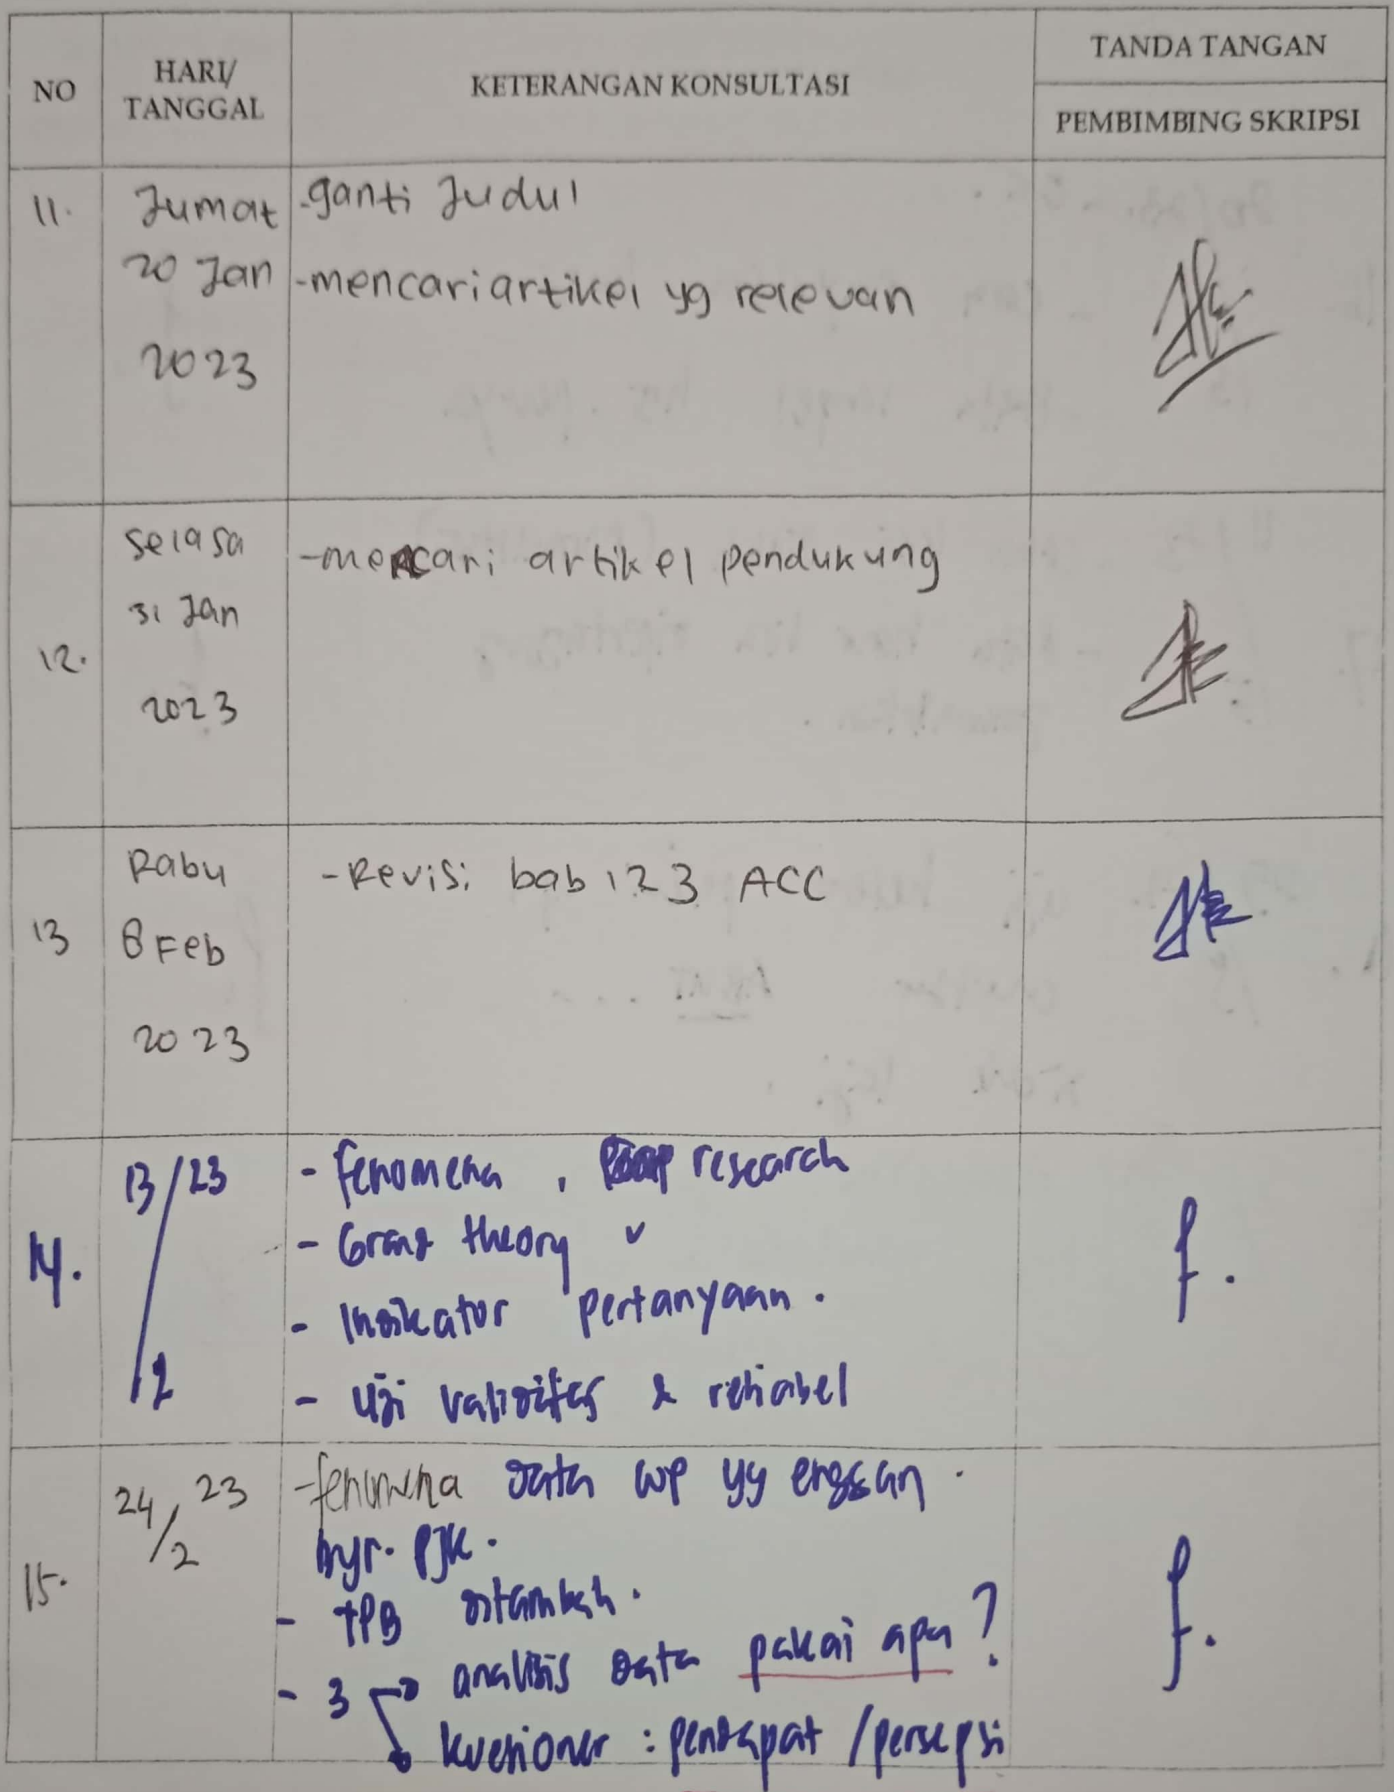 NO
HARI/
TANGGAL
KETERANGAN KONSULTASI
TANDA TANGAN
PEMBIMBING SKRIPSI
11.
Jumat
20 Jan
2023
-ganti Judul
-mencari artikel yg relevan
12.
Selasa
31 Jan
2023
-mencari artikel pendukung
13
Rabu
8 Feb
2023
-Revisi bab 1 2 3 ACC
14.
13/23
2
- fenomena, research
- Grand theory
- Indikator pertanyaan.
- Uji validitas & reliabel
15.
24/23
2
-fenomena data WP yg enggan
byr. PJK.
- TPB ditambah.
- 3 analisis data pakai apa?
kuesioner : pendapat / persepsi